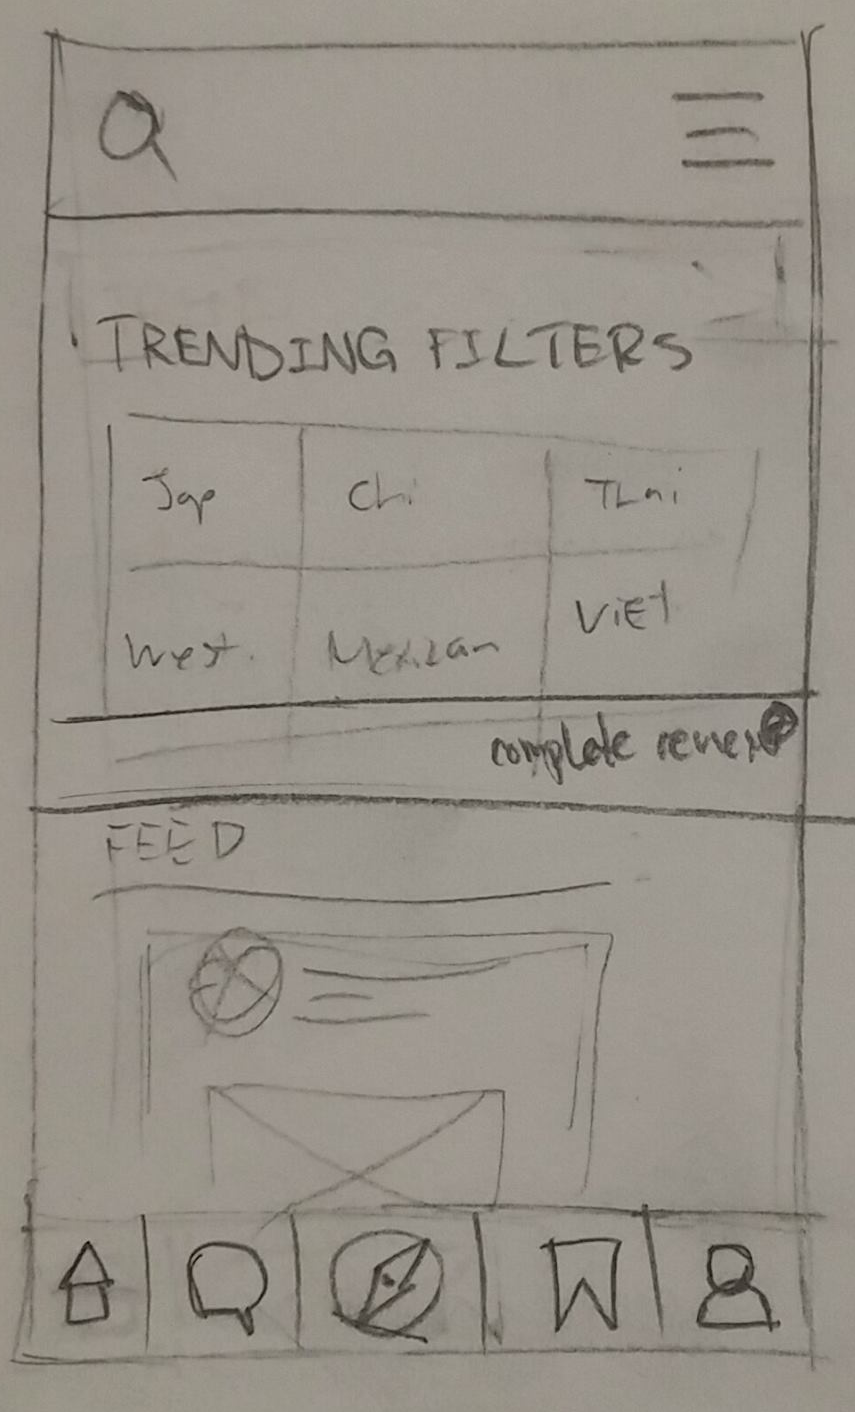 TRENDING FILTERS
Jap Chi Thai
West. Mexican Viet
complete review
FEED